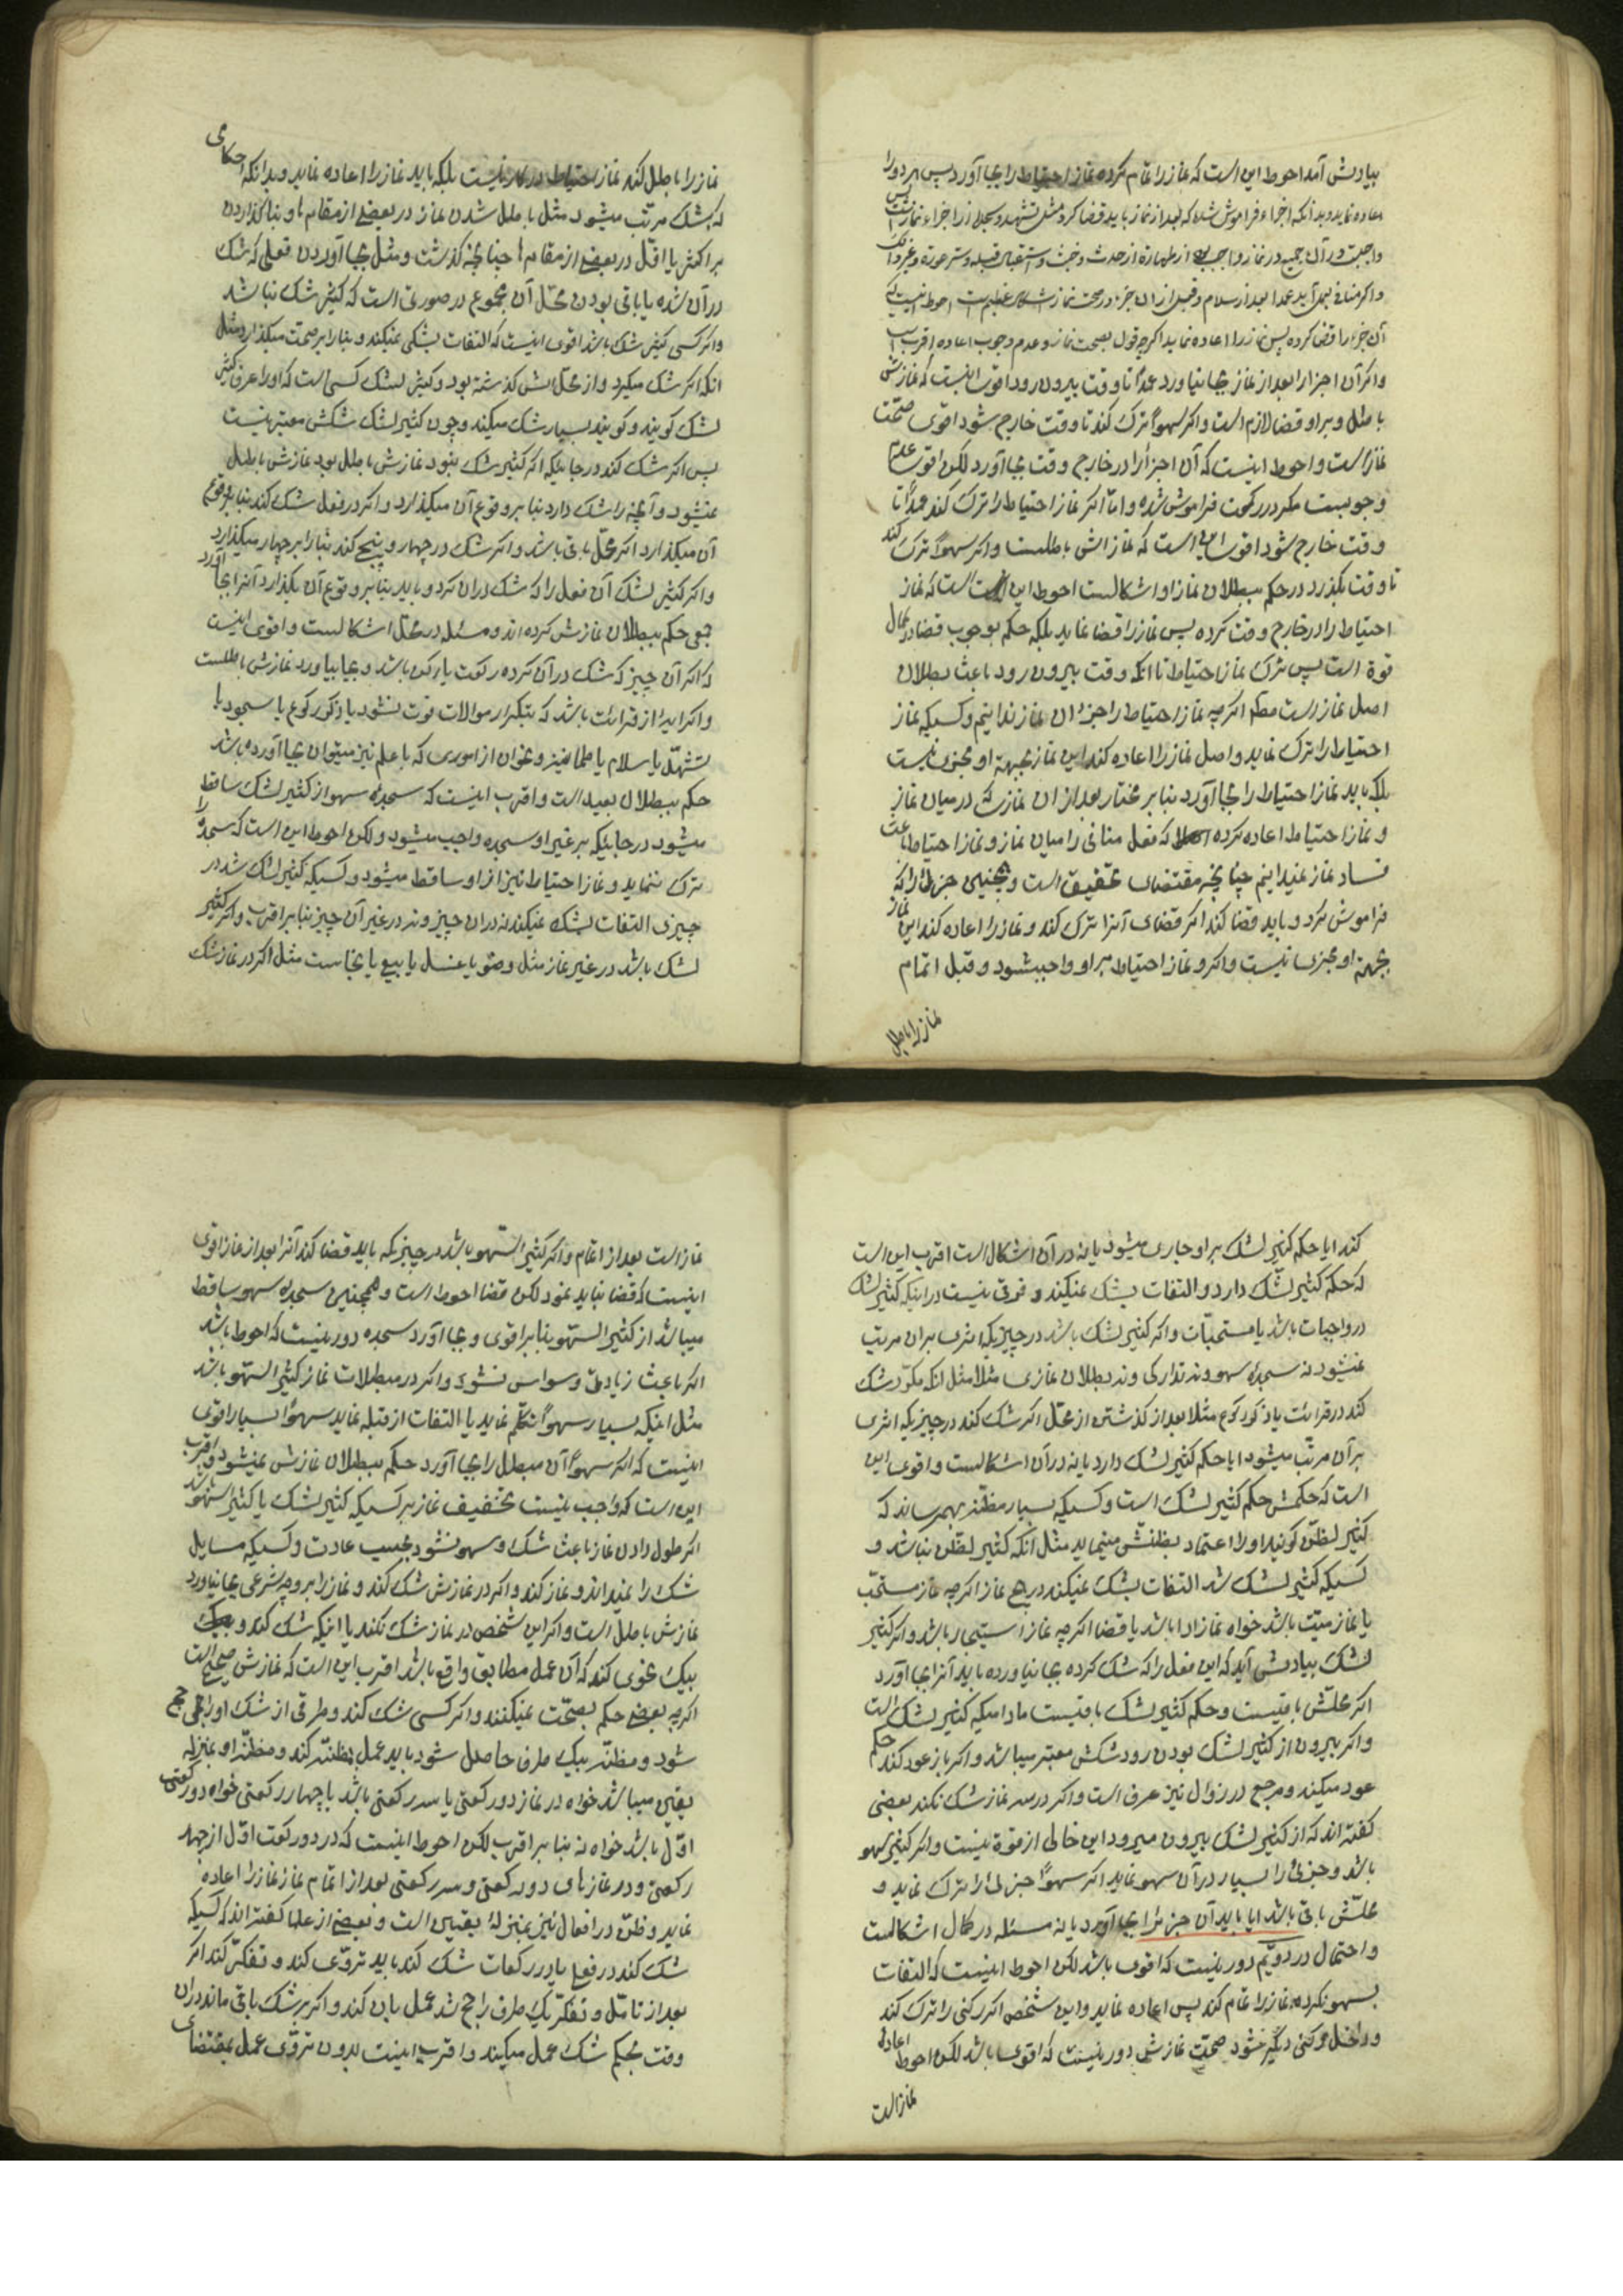 بیادش آمد احوط این است که نماز را تمام کرده نماز احتیاط را بجا آورد پس هر دو را
اعاده نماید و بدانکه اجزاء فراموش شده که بعد از نماز باید قضا کرد مثل تشهد و سجده از اجزاء نماز است پس
واجبست در آن جمیع در نماز واجب از طهارة از حدث و خبث و استقبال قبله و ستر عورة و غیر ذلک
واکر منافی بعمل آید عمدا بعد از سلام و قبل از آن جزء در صحت نماز اشکال عظیم است احوط اینست که
آن جزء را قضا کرده پس نماز را اعاده نماید اکرچه قول بصحت نماز و عدم وجوب اعاده اقرب است
واکر آن اجزا را بعد از نماز بجا نیاورد عمداً تا وقت بیرون رود اقوی اینست که نمازش
باطل و بر او قضا لازم است واکر سهواً ترک کند تا وقت خارج شود اقوی صحّت
نماز است و احوط اینست که آن اجزأ را در خارج وقت بجا آورد لکن اقوی عدم
وجوبست مکر در رکعت فراموش شده و امّا اکر نماز احتیاط را ترک کند عمداً تا
وقت خارج شود اقوی این است که نمازش باطلست واکر سهواً ترک کند
تا وقت بکذرد در حکم ببطلان نماز او اشکالست احوط این است که نماز
احتیاط را در خارج وقت کرده پس نماز را قضا نماید بلکه حکم بوجوب قضا در کمال
قوة است پس ترک نماز احتیاط تا انکه وقت بیرون رود باعث بطلان
اصل نماز است مطلقا اکرچه نماز احتیاط را جزء ان نماز ندانیم و کسیکه نماز
احتیاط را ترک نماید و اصل نماز را اعاده کند این نماز بجهة او مجزی نیست
بلکه باید نماز احتیاط را بجا آورد بنابر مختار بعد از ان نماز که در میان نماز
و نماز احتیاط اعاده کرده که فعل منافی را میان نماز و نماز احتیاط باعث
فساد نماز نمیدانیم چنانچه مقتضای تحقیق است و همچنین جزئی را که
فراموش کرد و باید قضا کند اکر قضای آنرا ترک کند و نماز را اعاده کند این نماز
بجهة او مجزی نیست واکر و نماز احتیاط بر او واجب شود و قبل اتمام
نماز را باطل
نماز را باطل کند نماز احتیاط در کار نیست بلکه باید نماز را اعاده نماید و بدانکه احکامی
که بشک مرتّب میشود مثل باطل شدن نماز در بعضی از مقام ها و بنا کذاردن
بر اکثر یا اقلّ در بعضی از مقام ها چنانچه کذشت و مثل بجا آوردن فعلی که شک
در آن شده یا باقی بودن محلّ آن مجموع در صورتی است که کثیر شک نباشد
واکر کسی کثیر شک باشد اقوی اینست که التفات بشکی نمیکند و بنا را بر صحّت میکذارد مثل
انکه اکر شک میکرد و از محلّش کذشته بود و کثیر الشک کسی است که او را عرف کثیر
الشک کویند و کویند بسیار شک میکند و چون کثیر الشک شکش معتبر نیست
پس اکر شک کند در جائیکه اکر کثیر شک نبود نمازش باطل بود نمازش باطل
نمیشود و آنچه را شک دارد بنا بر وقوع آن میکذارد و اکر در فعل شک کند بنا بر وقوع
آن میکذارد اکر محلّ باقی باشد واکر شک در چهار و پنج کند بنا را بر چهار میکذارد
واکر کثیر الشک آن فعل را که شک در ان کرد و باید بنا بر وقوع آن بکذارد آنرا بجا آورد
جمعی حکم ببطلان نمازش کرده اند و مسئله در محلّ اشکالست و اقوی اینست
که اکر آن چیز که شک در آن کرده رکعت یا رکن باشد و بجا بیاورد نمازش باطلست
واکر ایة از قرائت باشد که بتکرار موالات فوت نشود یا ذکر رکوع یا سجود یا
تشهّد یا سلام یا طمانینه و نحو ان از اموری که با علم نیز میتوان بجا آورده باشد
حکم ببطلان بعید است و اقرب اینست که سجده سهو از کثیر الشک ساقط
میشود در جائیکه بر غیر او سجده واجب میشود و لکن احوط این است که سجده را
ترک ننماید و نماز احتیاط نیز از او ساقط میشود و کسیکه کثیر الشک شد در
چیزی التفات بشک نمیکند نه در ان چیز و نه در غیر آن چیز بنا بر اقرب و اکر کثیر
الشک باشد در غیر نماز مثل وضو یا غسل یا بیع یا نجاست مثل اکر در نماز شک
کند ایا حکم کثیر الشک بر او جاری میشود یا نه در آن اشکال است اقرب این است
که حکم کثیر الشک دارد و التفات بشک نمیکند و فرقی نیست در اینکه کثیر الشک
در واجبات باشد یا مستحبّات واکر کثیر الشک باشد در چیزیکه اثری بر ان مرتب
نمیشود نه سجدۀ سهو و نه تدارکی و نه بطلان نمازی مثلا مثل انکه مکرّر شک
کند در قرائت یا ذکر رکوع مثلا بعد از کذشتن از محلّ اکر شک کند در چیزیکه اثری
بر آن مرتّب میشود ایا حکم کثیر الشک دارد یا نه در آن اشکالست و اقوی این
است که حکمش حکم کثیر الشک است و کسیکه بسیار مظنّه بهم رساند که
کثیر الظنّ کویند او را اعتماد بظنّش مینماید مثل آنکه کثیر الظنّ نباشد و
کسیکه کثیر الشک شد التفات بشک نمیکند در هیچ نماز اکرچه نماز مستحبّ
یا نماز میّت باشد خواه نماز ادا باشد یا قضا اکرچه نماز استیجار باشد و اکر کثیر
الشک بیادش آید که این فعل را که شک کرده بجا نیاورده باید آنرا بجا آورد
اکر محلّش باقیست و حکم کثیر الشک باقیست مادامیکه کثیر الشک است
واکر بیرون از کثیر الشک بودن رود شکش معتبر میباشد واکر باز عود کند حکم
عود میکند و مرجع در زوال نیز عرف است واکر در سه نماز شک نکند بعضی
کفته اند که از کثیر الشک بیرون میرود این خالی از قوة نیست واکر کثیر السهو
باشد و جزئی را بسیار در آن سهو نماید اکر سهواً جزئی را ترک نماید و
محلّش باقی باشد ایا باید آن جزء را بجا آورد یا نه مسئله در کمال اشکالست
و احتمال در دویّم دور نیست که اقوی باشد لکن احوط اینست که التفات
بسهو نکرده نماز را تمام کند پس اعاده نماید و این شخص اکر رکنی را ترک کند
و داخل رکنی دیکر نشود صحّت نمازش دور نیست که اقوی باشد لکن احوط اعادۀ
نماز است
نماز است بعد از اتمام واکر کثیر السّهو باشد در چیزیکه باید قضا کند آنرا بعد از نماز اقوی
اینست که قضا نباید نمود لکن قضا احوط است و همچنین سجدۀ سهو ساقط
میباشد از کثیر السّهو بنا بر اقوی و بجا آورد سجده دور نیست که احوط باشد
اکر باعث زیادتی وسواس نشود واکر در مبطلات نماز کثیر السّهو باشد
مثل اینکه بسیار سهواً تکلّم نماید یا التفات از قبله نماید سهواً بسیار اقوی
اینست که اکر سهواً آن مبطل را بجا آورد حکم ببطلان نمازش نمیشود و اقرب
این است که واجب نیست تخفیف نماز بر کسیکه کثیر الشک یا کثیر السّهو باشد
اکر طول دادن نماز باعث شک و سهو نشود بحسب عادت و کسیکه مسایل
شک را نمیداند و نماز کند واکر در نمازش شک کند و نماز را بر وجه شرعی بجا نیاورد
نمازش باطل است واکر این شخص در نماز شک نکند یا اینکه شک کند و
بیک نحوی کند که آن عمل مطابق واقع باشد اقرب این است که نمازش صحیح است
اکرچه بعضی حکم بصحّت نمیکنند واکر کسی شک کند و طرفی از شک او راجح
شود و مظنّه بیک طرف حاصل شود باید عمل بظنّه کند و مظنّه او بمنزله
یقین میباشد خواه در نماز دو رکعتی یا سه رکعتی باشد یا چهار رکعتی خواه دو رکعتی
اوّل باشد خواه نه بنا بر اقرب لکن احوط اینست که در دو رکعت اوّل از چهار
رکعتی و در نمازهای دو رکعتی و سه رکعتی بعد از اتمام نماز نماز را اعاده
نماید و ظنّ در افعال نیز بمنزلۀ یقین است و بعضی از علما کفته اند که کسیکه
شک کند در فعل یا در رکعات شک کند باید تروّی کند و تفکّر کند اکر
بعد از تامّل و تفکّر یک طرف راجح شد عمل بان کند واکر بر شک باقی ماند در ان
وقت بحکم شک عمل میکند و اقرب اینست بدون تروّی عمل بمقتضای